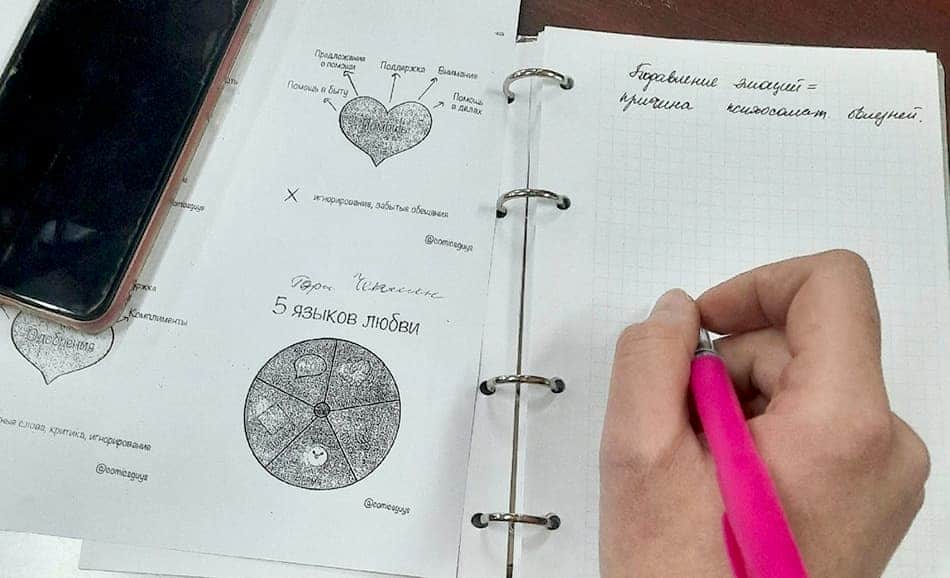 Предложание
о помощи
Поддержка
Внимание
Помощь в быту
Помощь
в делах
Помощь
игнорирования, забытые обещания
@comicsguys
Гэри Чепмен
5 языков любви
@comicsguys
Комплименты
Одобрения
слова, критика, игнорирование
@comicsguys
Подавление эмоций =
причина психосомат. болезней.